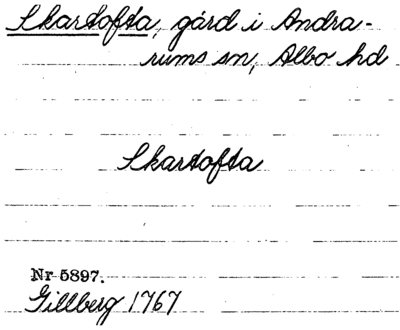 Skartofta, gård i Andra-
rums sn, Albo hd
Skartofta
Nr 5897.
Gillberg 1767